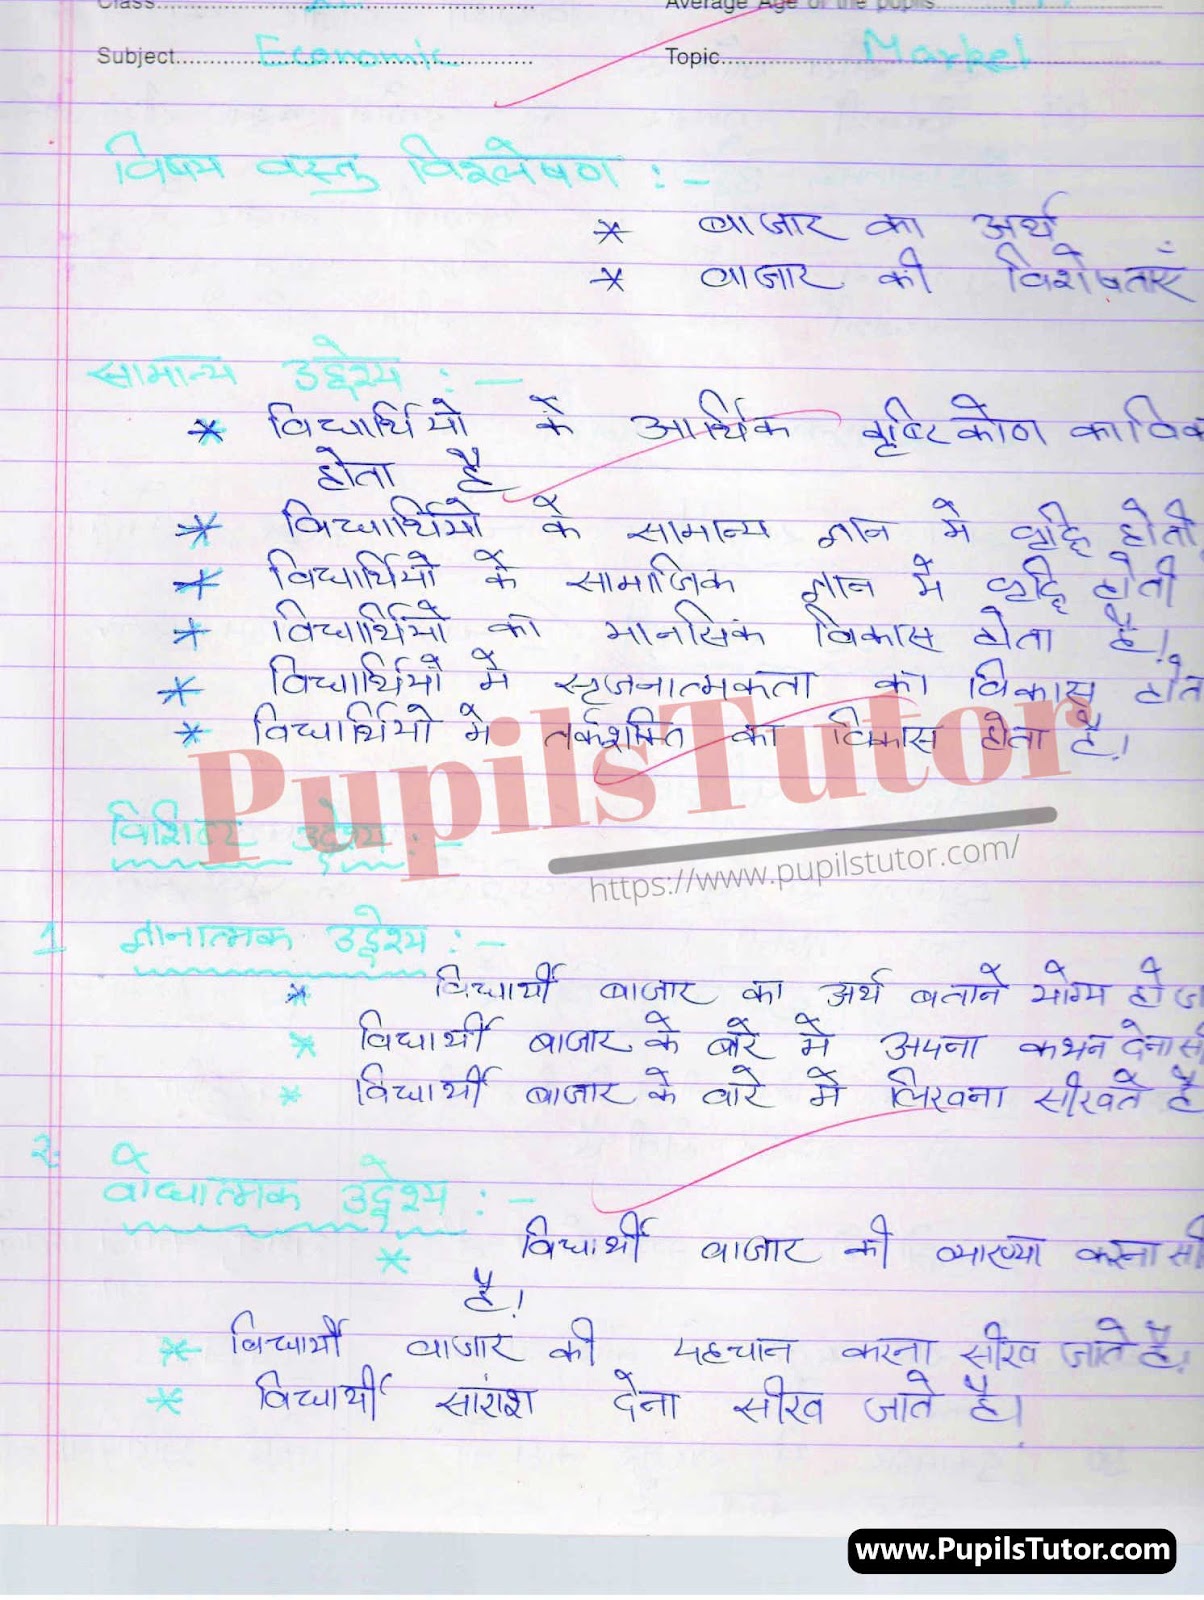 Class........ Average Age of the pupils........
Subject........Economic........ Topic........Market........
विषय वस्तु विश्लेषण :-
* बाजार का अर्थ
* बाजार की विशेषताएँ
सामान्य उद्देश्य :-
* विद्यार्थियो के आर्थिक दृष्टिकोण का विक
होता है
* विद्यार्थियो के सामान्य ज्ञान मे वृद्धि होती
* विद्यार्थियो के सामाजिक ज्ञान मे वृद्धि होती
* विद्यार्थियो का मानसिक विकास होता है।
* विद्यार्थियो मे सृजनात्मकता का विकास होत
* विद्यार्थियो मे तर्कशक्ति का विकास होता है।
PupilsTutor
विशिष्ट उद्देश्य :-
https://www.pupilstutor.com/
1 ज्ञानात्मक उद्देश्य :-
* विद्यार्थी बाजार का अर्थ बताने योग्य हो ज
* विद्यार्थी बाजार के बारे मे अपना कथन देना सी
* विद्यार्थी बाजार के बारे मे लिखना सीखते है
2. बोधात्मक उद्देश्य :-
* विद्यार्थी बाजार की व्याख्या करना सी
है।
* विद्यार्थी बाजार की पहचान करना सीख जाते है।
* विद्यार्थी सारांश देना सीख जाते है।
www.PupilsTutor.com